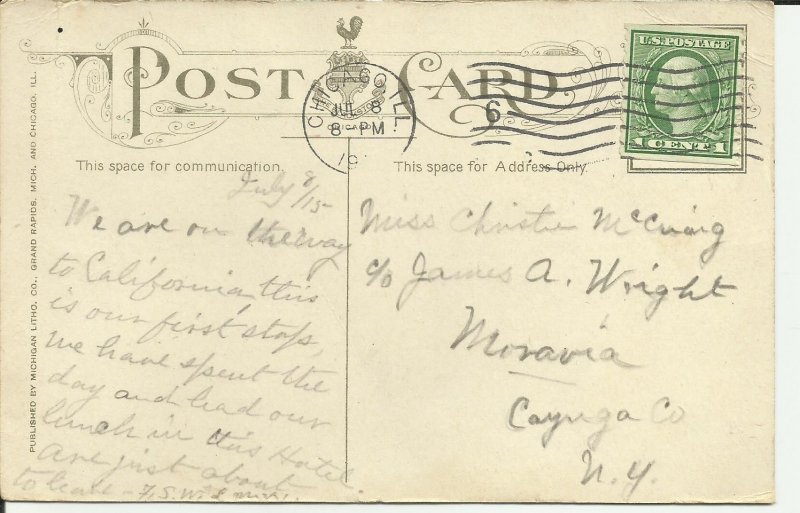 POST CARD
U.S. POSTAGE
1 CENT 1
CHICAGO, ILL.
JUL 8
8-PM
191
6
CHICAGO
This space for communication.
This space for Address Only.
PUBLISHED BY MICHIGAN LITHO. CO., GRAND RAPIDS, MICH. AND CHICAGO, ILL.
July 8/15
We are on the way
to California, this
is our first stop,
we have spent the
day and had our
lunch in this Hotel.
Are just about
to leave - F. S. W.
Miss Christie McCraig
c/o James A. Wright
Moravia
Cayuga Co
N.Y.